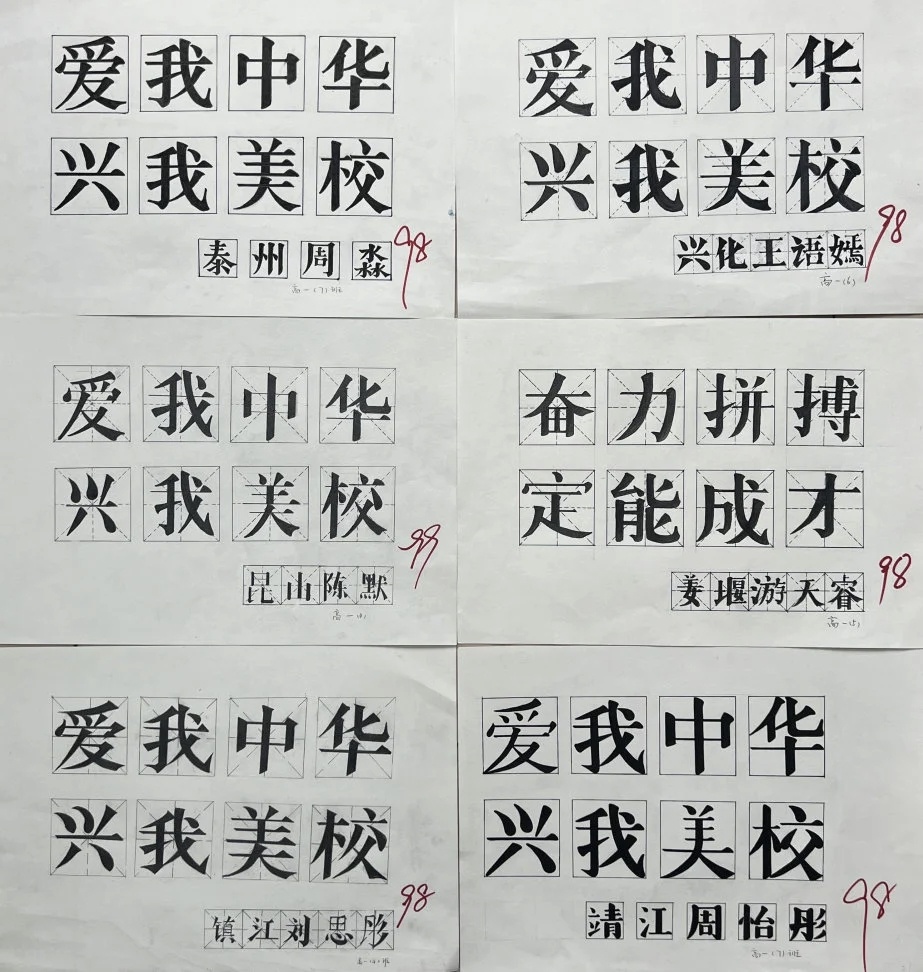 爱我中华
兴我美校
泰州周淼
98
高一(7)班
爱我中华
兴我美校
兴化王语嫣
98
高一(6)
爱我中华
兴我美校
昆山陈默
99
高一
奋力拼搏
定能成才
姜堰游天睿
98
高一(5)
爱我中华
兴我美校
镇江刘思彤
98
高一 班
爱我中华
兴我美校
靖江周怡彤
98
高一(7)班